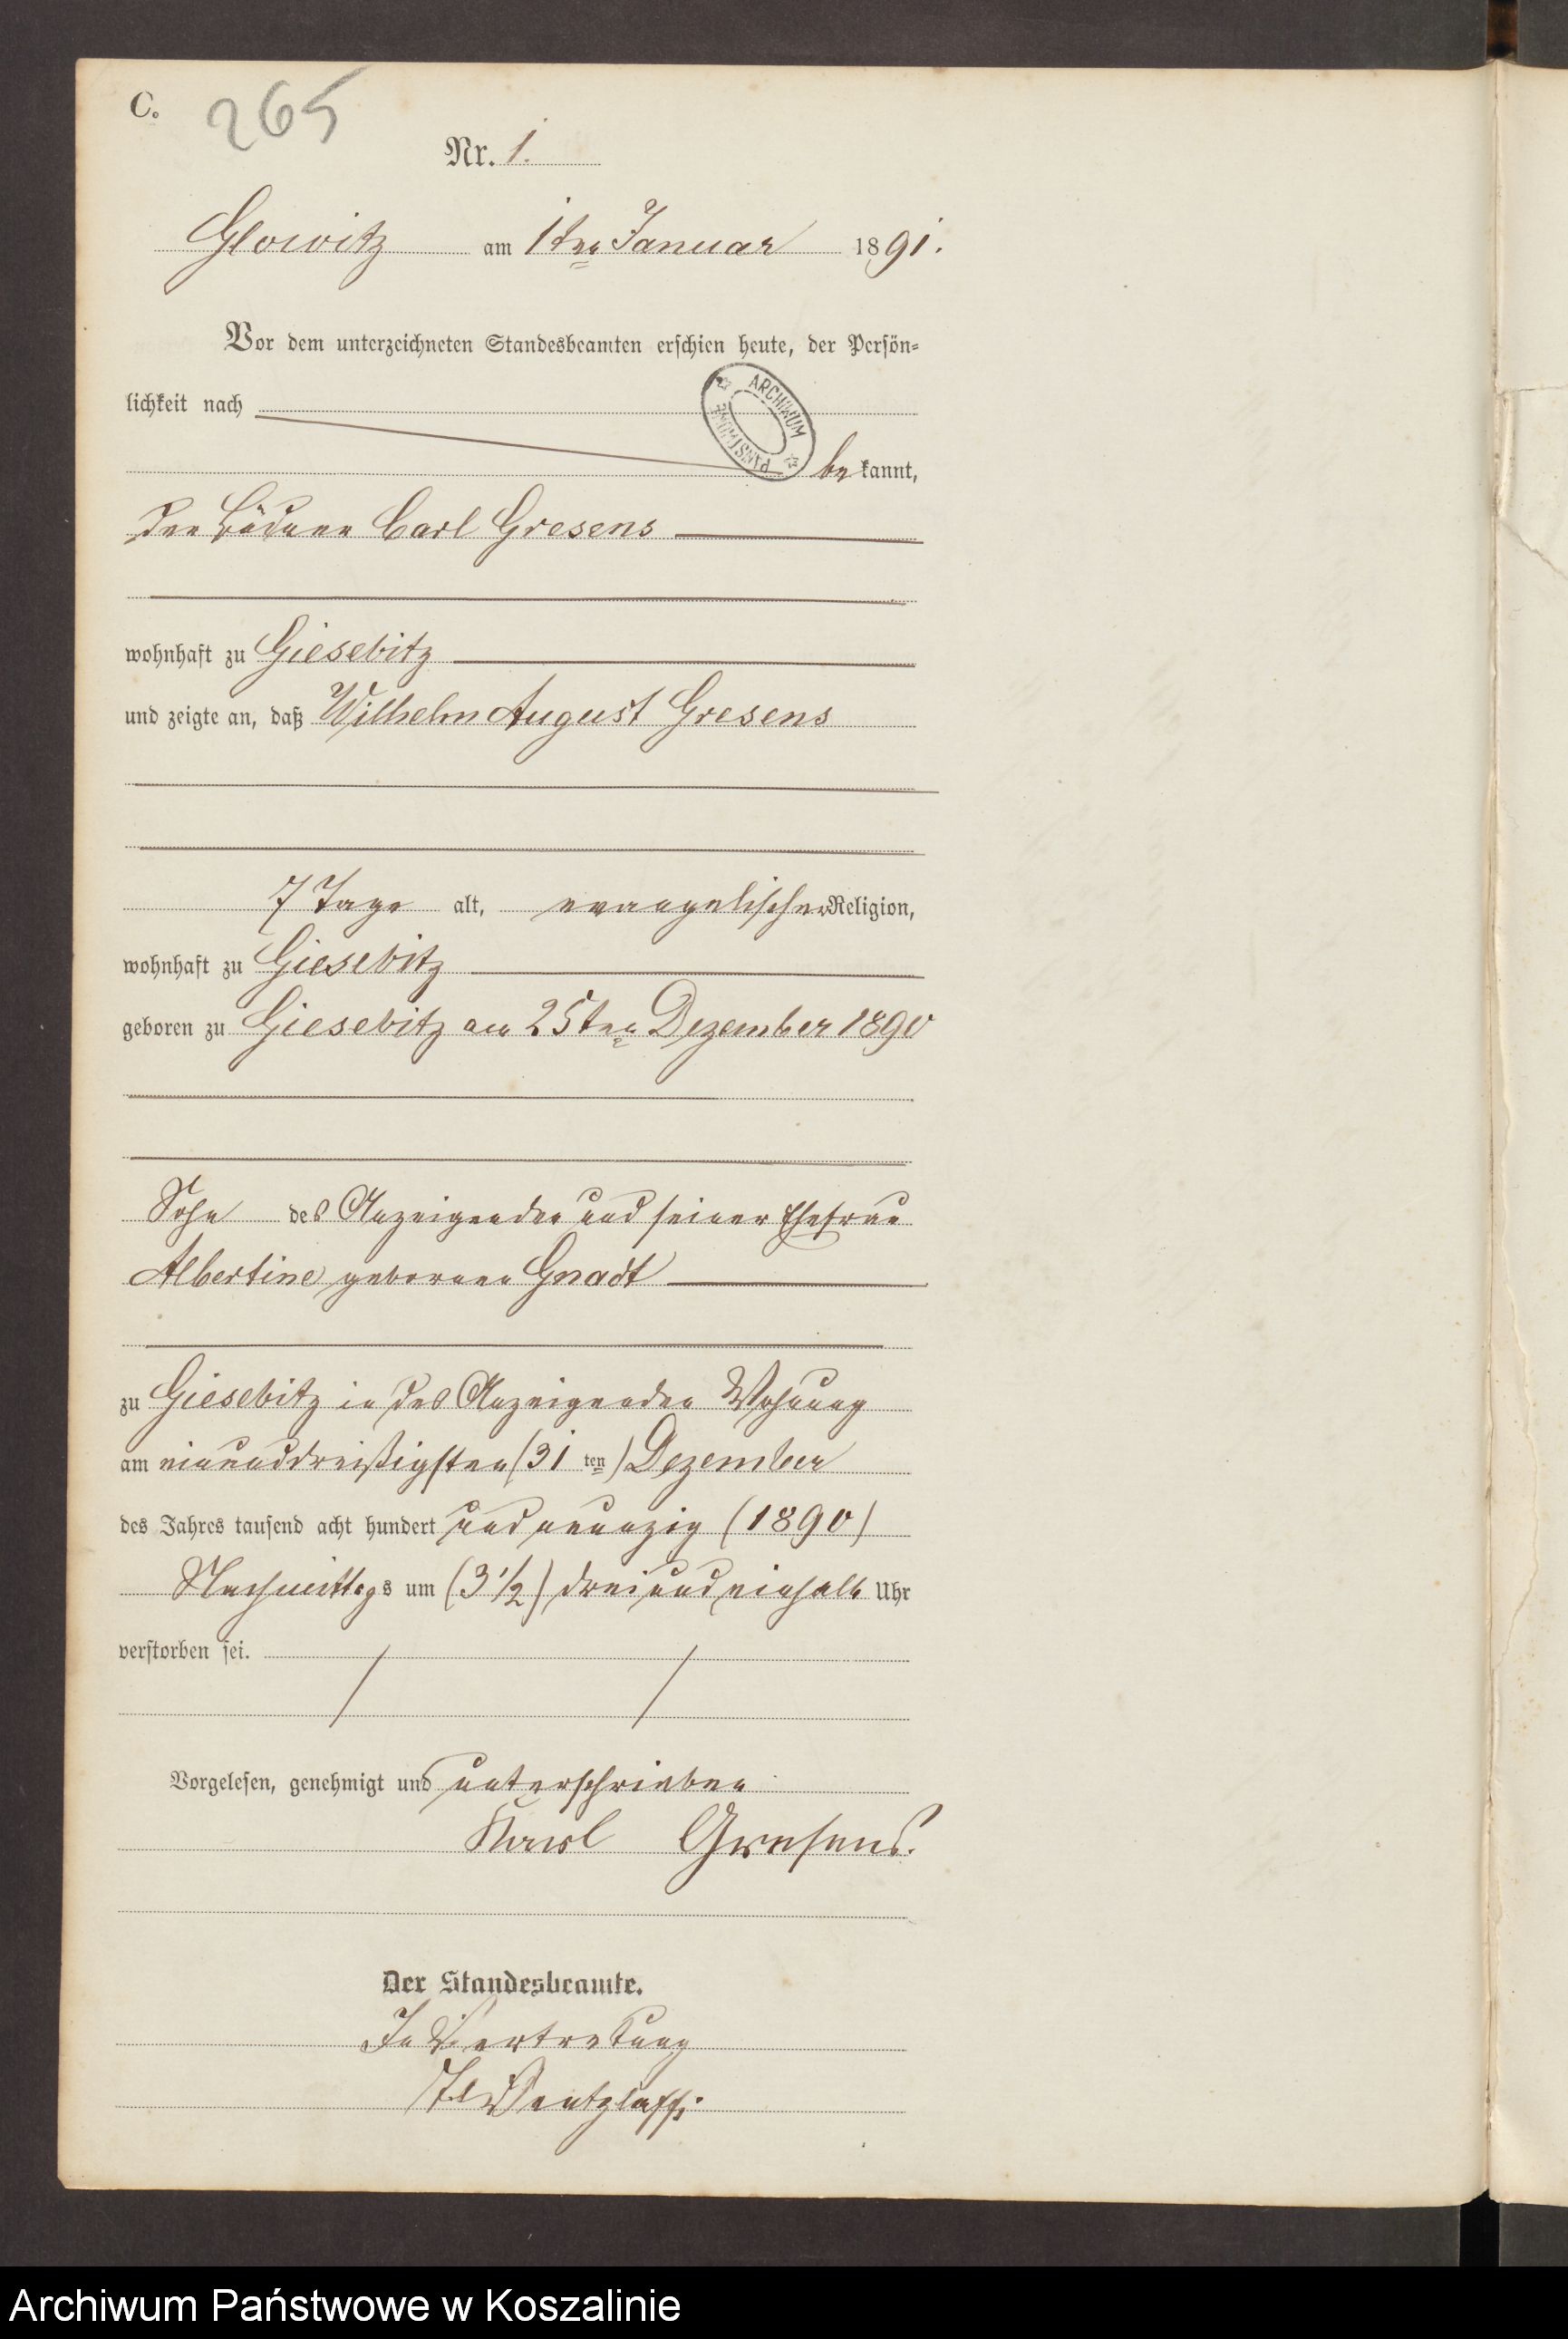 C. 265
Nr. 1.
Glowitz am 1ten Januar 1891.
Vor dem unterzeichneten Standesbeamten erschien heute, der Persön-
lichkeit nach
ARCHIWUM PAŃSTWOWE
bekannt,
der Büdner Carl Gresens
wohnhaft zu Giesebitz
und zeigte an, daß Wilhelm August Gresens
7 Tage alt, evangelischer Religion,
wohnhaft zu Giesebitz
geboren zu Giesebitz am 25ten Dezember 1890
Sohn des Anzeigenden und seiner Ehefrau
Albertine geborenen Gnadt
zu Giesebitz in des Anzeigenden Wohnung
am einunddreißigsten (31 ten) Dezember
des Jahres tausend acht hundert und neunzig (1890)
Nachmittags um (3 1/2) drei und einhalb Uhr
verstorben sei.
Vorgelesen, genehmigt und unterschrieben
Karl Gresens.
Der Standesbeamte.
In Vertretung
Wentzlaff.
Archiwum Państwowe w Koszalinie